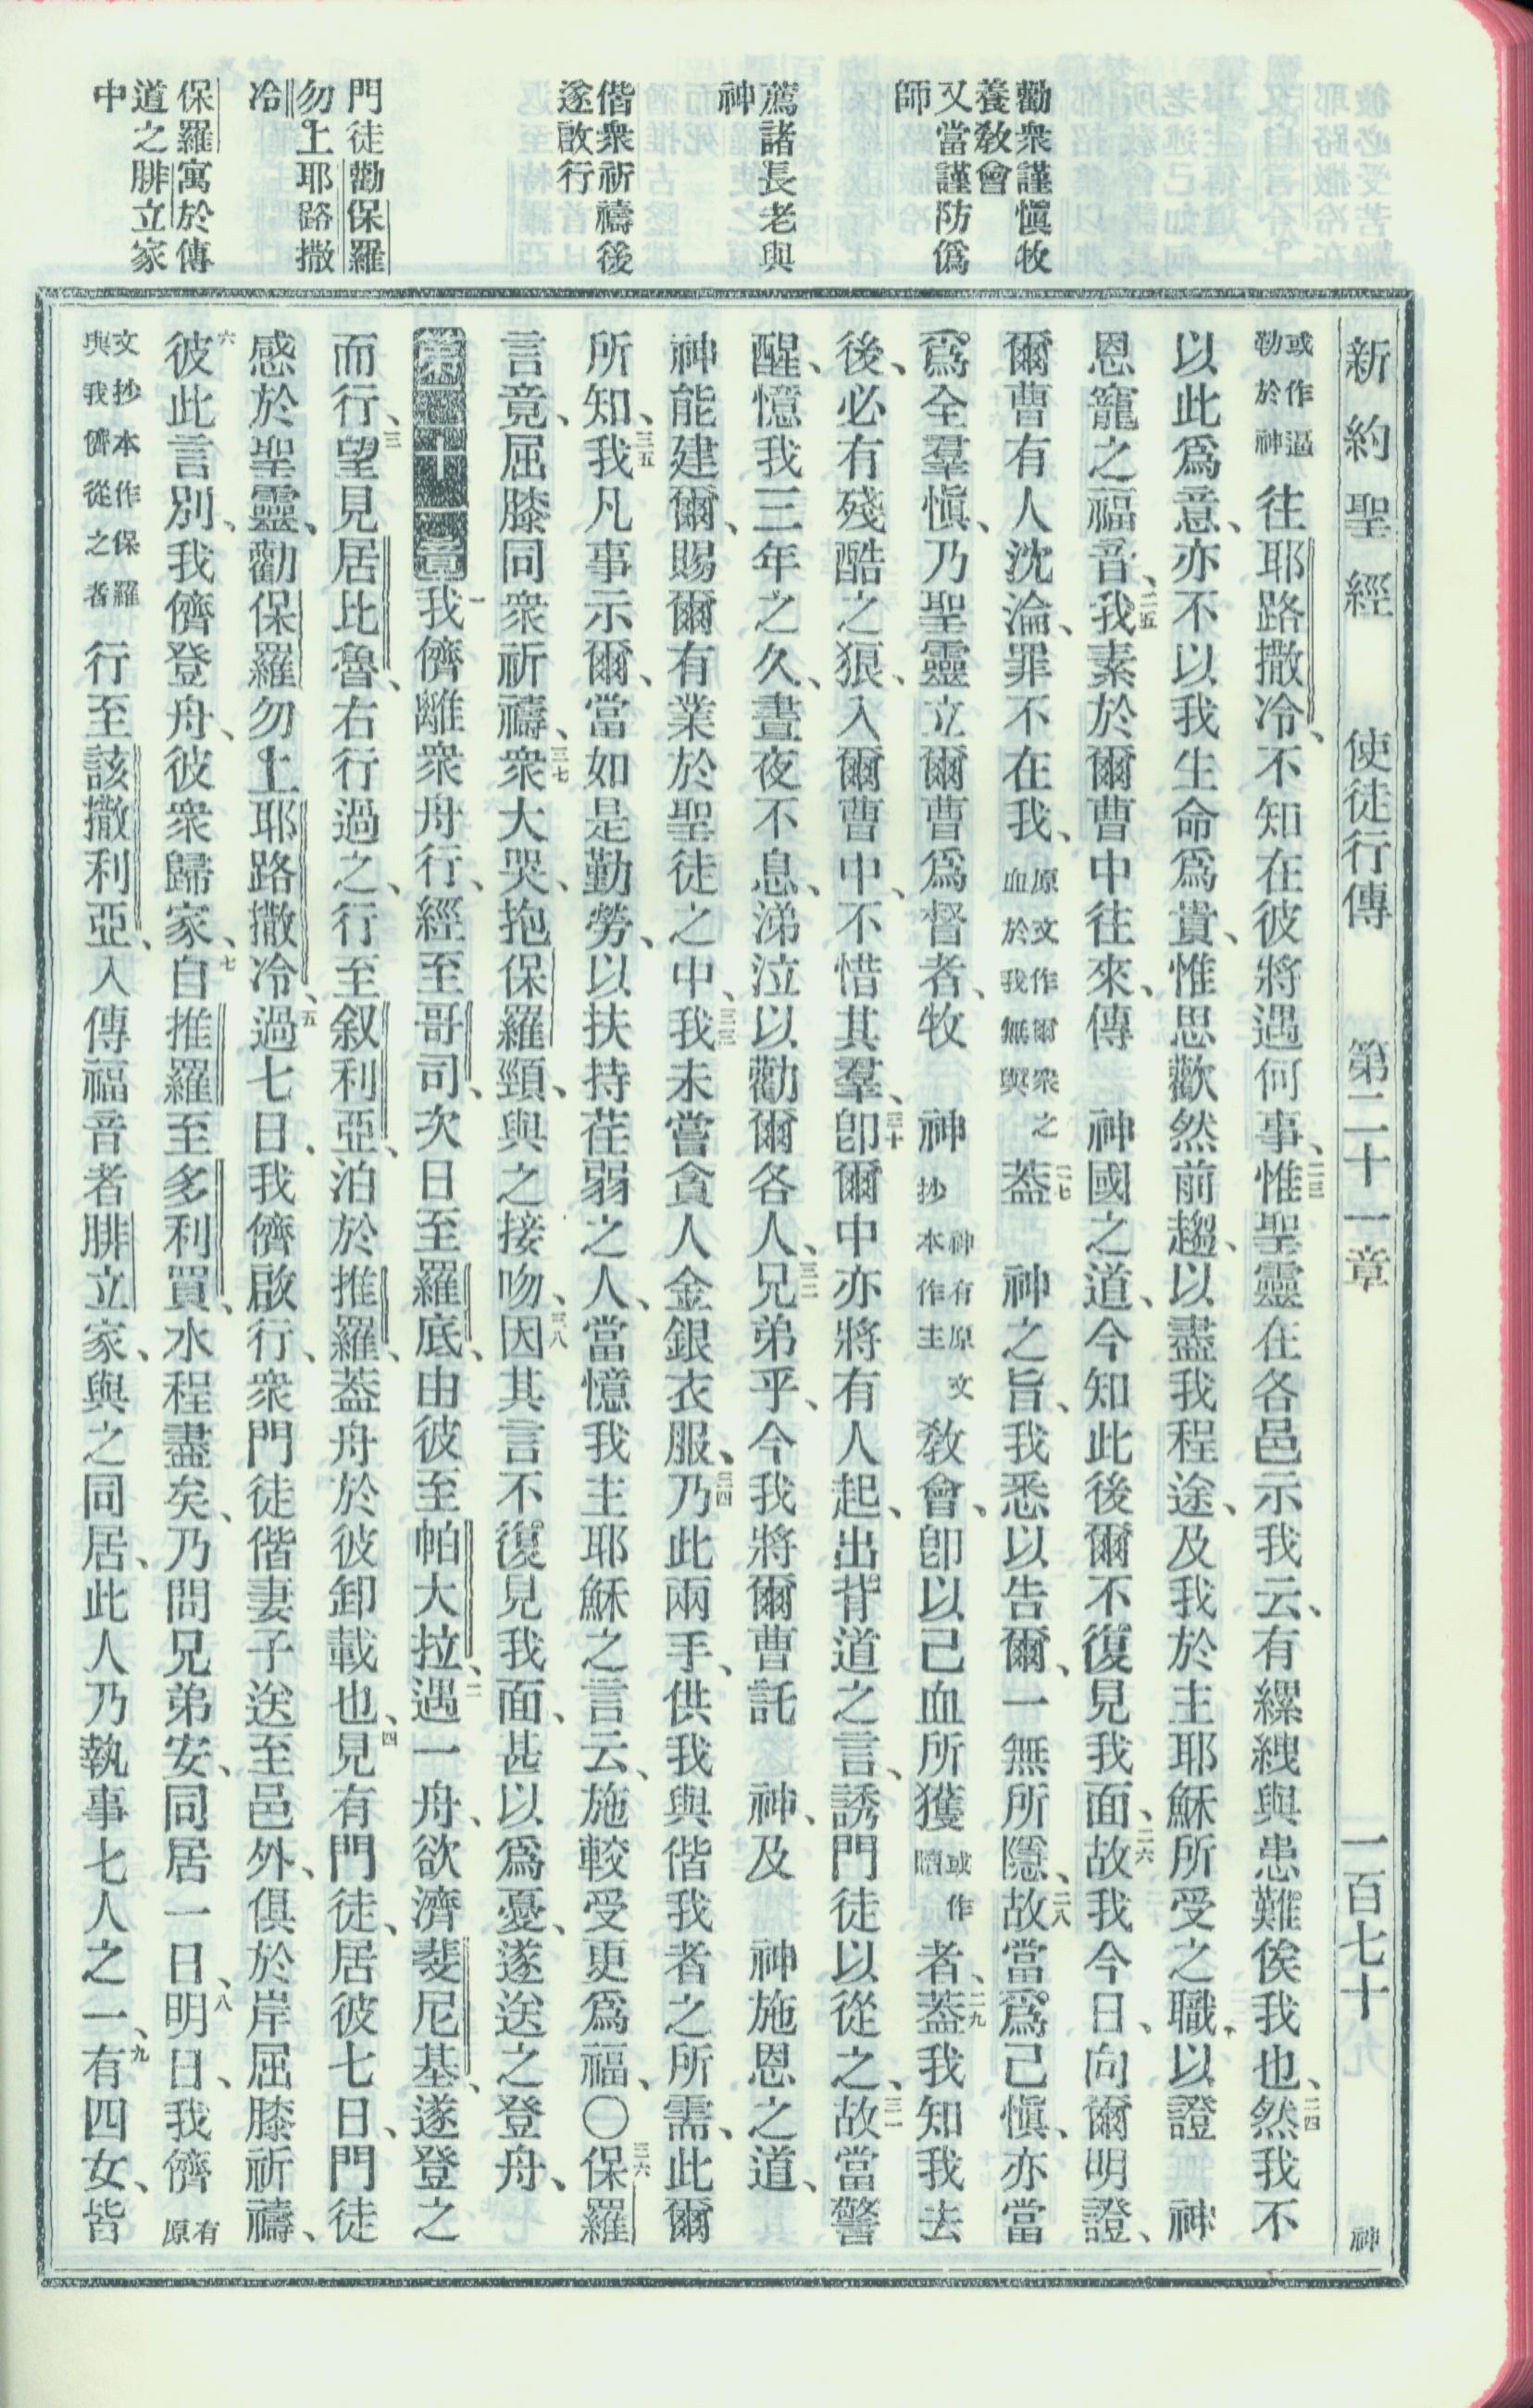 新約聖經　使徒行傳　第二十一章　一百七十　神
勸衆謹愼牧
養教會
又當謹防僞
師
薦諸長老與
神
偕衆祈禱後
遂啟行
門徒勸保羅
勿上耶路撒
冷
保羅寓於傳
道之腓立家
中
或作逼勒於神往耶路撒冷、不知在彼將遇何事、二三惟聖靈在各邑示我云、有縲絏與患難俟我也、二四然我不
以此爲意、亦不以我生命爲貴、惟思歡然前趨、以盡我程途、及我於主耶穌所受之職、以證　神
恩寵之福音、二五我素於爾曹中往來、傳　神國之道、今知此後爾不復見我面、二六故我今日、向爾明證、
爾曹有人沈淪、罪不在我、原文作爾衆之血於我無與二七蓋　神之旨、我悉以告爾、一無所隱、二八故當爲己愼、亦當
爲全羣愼、乃聖靈立爾曹爲督者、牧　神神有原文抄本作主教會、卽以己血所獲或作贖者、二九蓋我知我去
後、必有殘酷之狼、入爾曹中、不惜其羣、三十卽爾中亦將有人起、出背道之言、誘門徒以從之、三一故當警
醒、憶我三年之久、晝夜不息、涕泣以勸爾各人、三二兄弟乎、今我將爾曹託　神、及　神施恩之道、
神能建爾、賜爾有業於聖徒之中、三三我未嘗貪人金銀衣服、三四乃此兩手、供我與偕我者之所需、此爾
所知、三五我凡事示爾、當如是勤勞、以扶持荏弱之人、當憶我主耶穌之言云、施較受更爲福、〇三六保羅
言竟、屈膝同衆祈禱、三七衆大哭、抱保羅頸、與之接吻、三八因其言不復見我面、甚以爲憂、遂送之登舟、
第二十一章一我儕離衆舟行、經至哥司、次日至羅底、由彼至帕大拉、二遇一舟、欲濟斐尼基、遂登之
而行、三望見居比魯、右行過之、行至叙利亞、泊於推羅、蓋舟於彼卸載也、四見有門徒、居彼七日、門徒
感於聖靈、勸保羅勿上耶路撒冷、五過七日、我儕啟行、衆門徒偕妻子送至邑外、俱於岸屈膝祈禱、
六彼此言別、我儕登舟、彼衆歸家、七自推羅至多利買、水程盡矣、乃問兄弟安、同居一日、八明日、我儕有原
文抄本作保羅與我儕從之者行至該撒利亞、入傳福音者腓立家、與之同居、此人乃執事七人之一、九有四女、皆